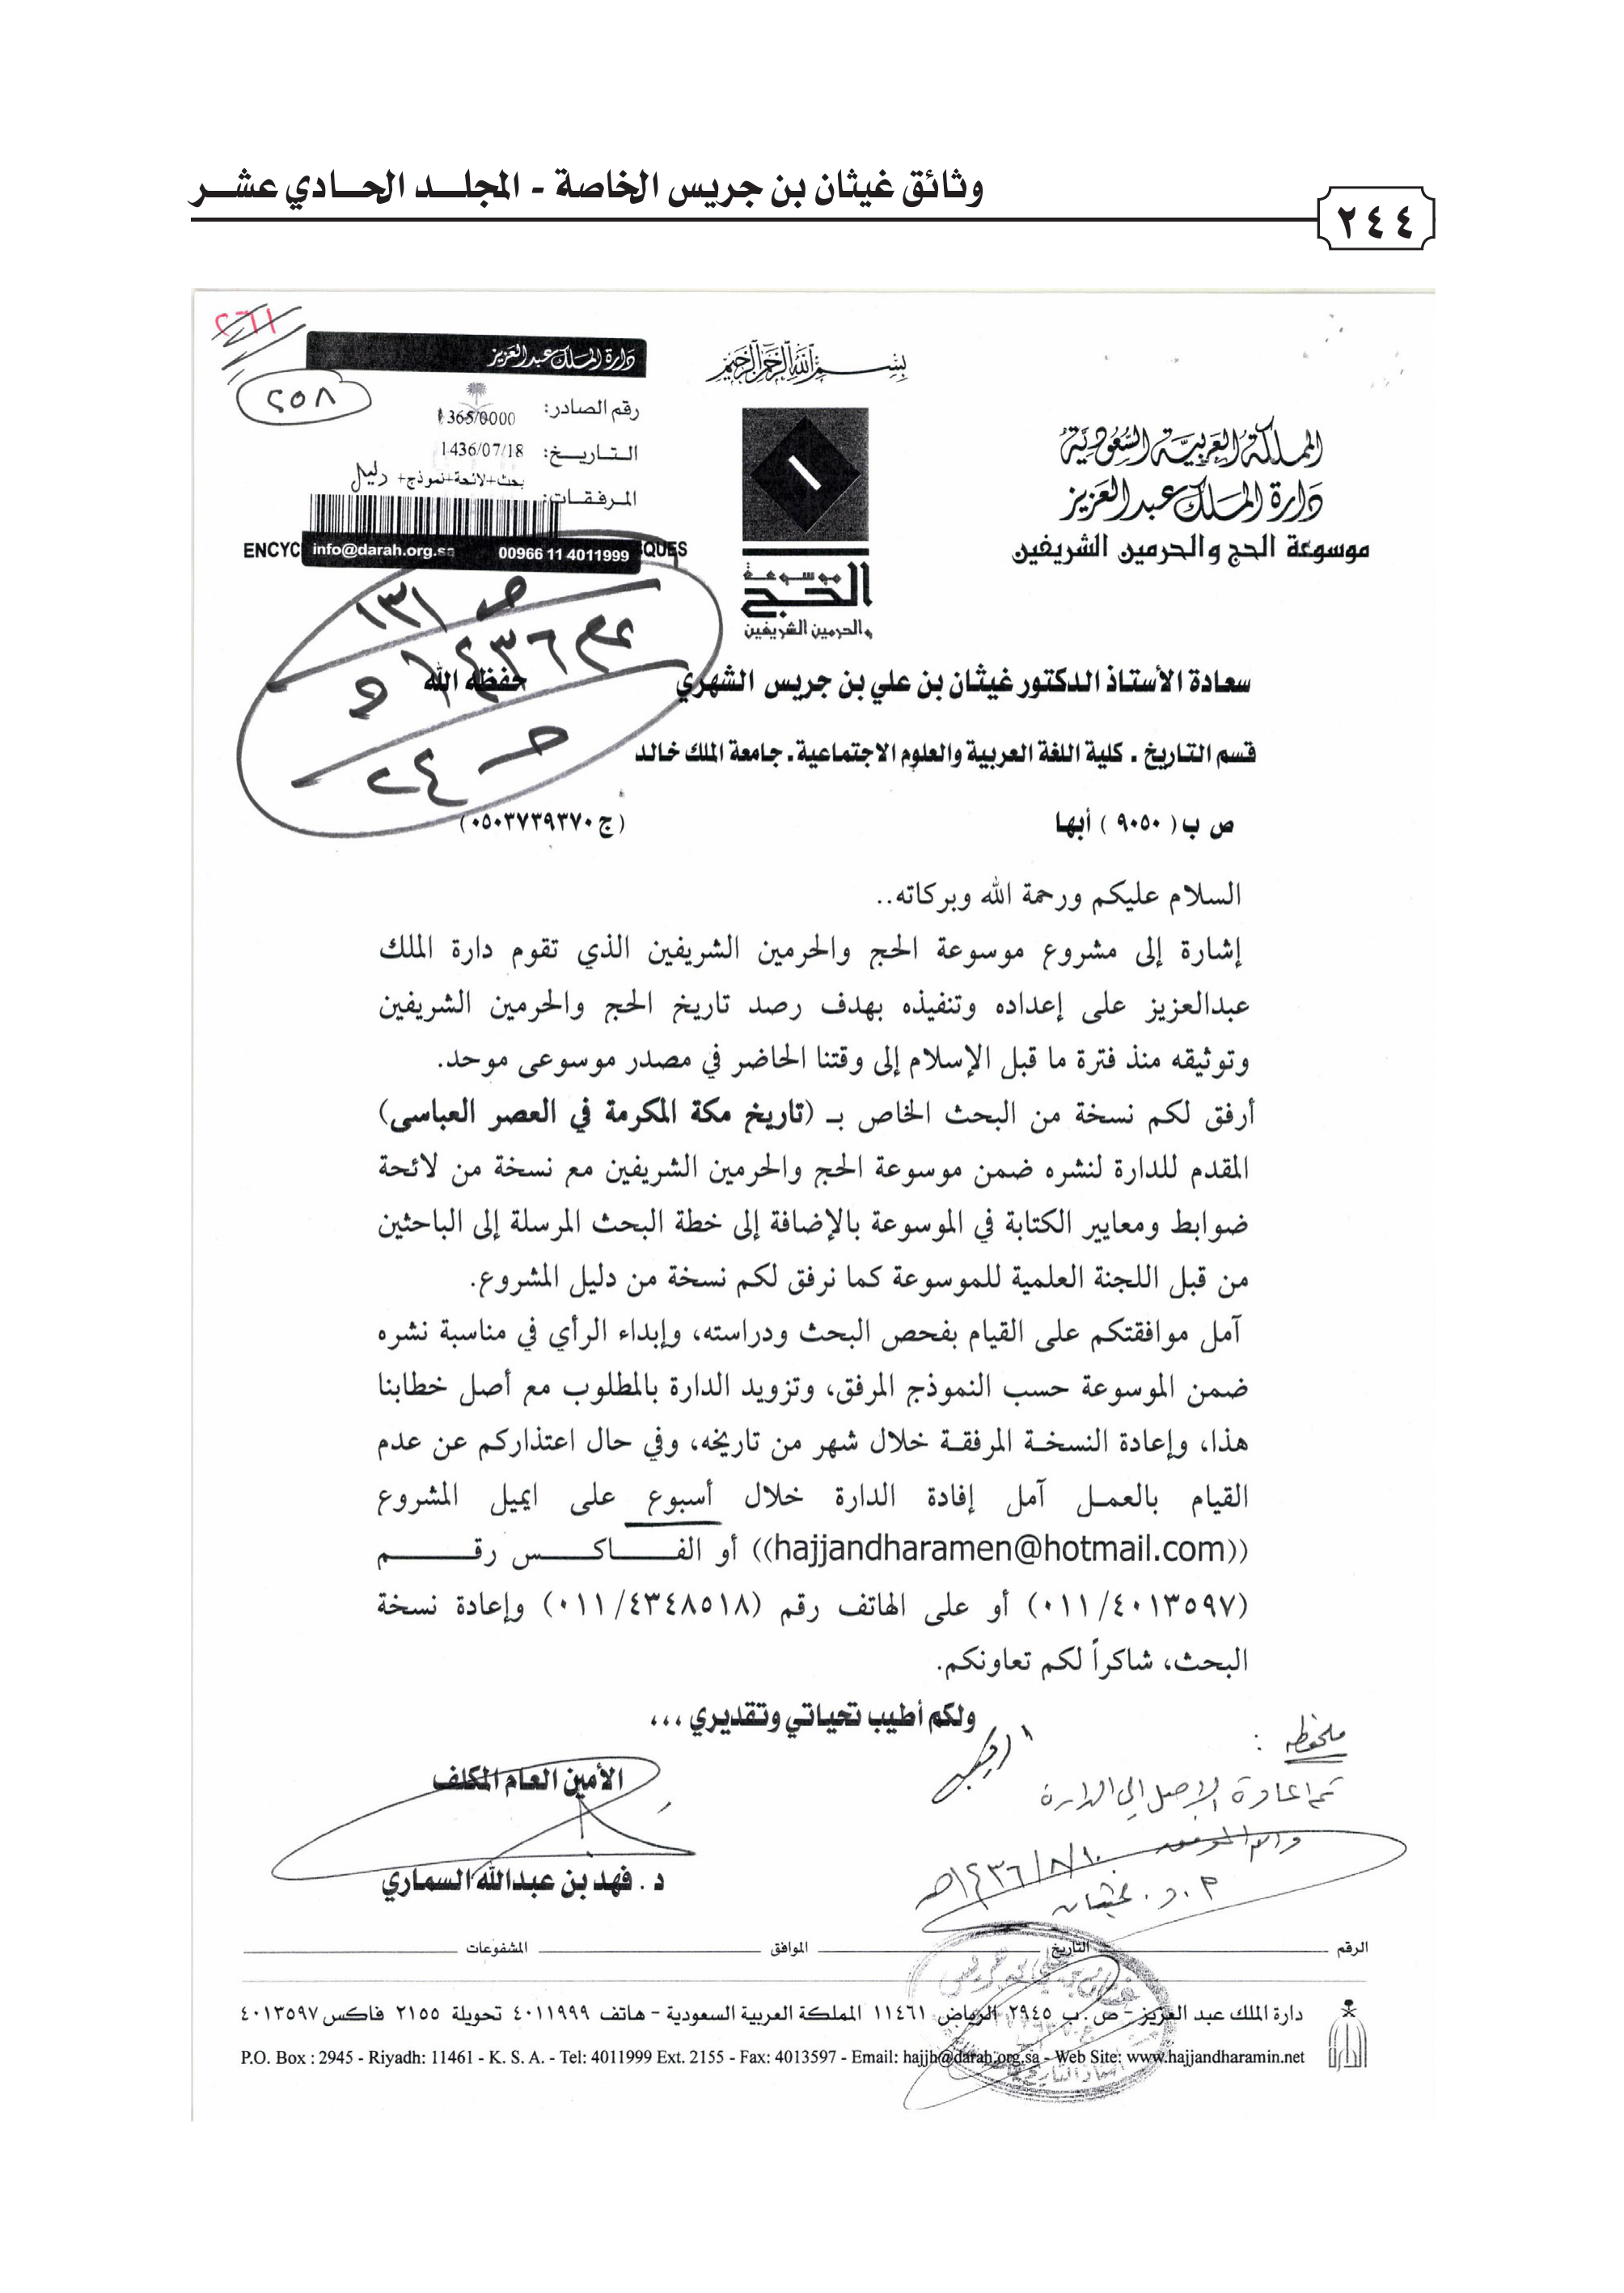 وثائق غيثان بن جريس الخاصة - المجلد الحادي عشر
٢٤٤
٢٦١
٢٥٨
دارة الملك عبدالعزيز
رقم الصادر:
التاريخ: 1436/07/18
المرفقات: بحث+لائحة+نموذج+ دليل
info@darah.org.sa 00966 11 4011999
ENCYC
QUES
بسم الله الرحمن الرحيم
المملكة العربية السعودية
دارة الملك عبدالعزيز
موسوعة الحج والحرمين الشريفين
موسوعة
الحج
والحرمين الشريفين
ص ١٣١
عام ١٤٣٦ هـ
حـ ٢٤
سعادة الأستاذ الدكتور غيثان بن علي بن جريس الشهري حفظه الله
قسم التاريخ . كلية اللغة العربية والعلوم الاجتماعية . جامعة الملك خالد
ص ب ( ٩٠٥٠ ) أبها (ج ٠٥٠٣٧٣٩٣٧٠)
السلام عليكم ورحمة الله وبركاته..
إشارة إلى مشروع موسوعة الحج والحرمين الشريفين الذي تقوم دارة الملك
عبدالعزيز على إعداده وتنفيذه بهدف رصد تاريخ الحج والحرمين الشريفين
وتوثيقه منذ فترة ما قبل الإسلام إلى وقتنا الحاضر في مصدر موسوعي موحد.
أرفق لكم نسخة من البحث الخاص بـ (تاريخ مكة المكرمة في العصر العباسي)
المقدم للدارة لنشره ضمن موسوعة الحج والحرمين الشريفين مع نسخة من لائحة
ضوابط ومعايير الكتابة في الموسوعة بالإضافة إلى خطة البحث المرسلة إلى الباحثين
من قبل اللجنة العلمية للموسوعة كما نرفق لكم نسخة من دليل المشروع.
آمل موافقتكم على القيام بفحص البحث ودراسته، وإبداء الرأي في مناسبة نشره
ضمن الموسوعة حسب النموذج المرفق، وتزويد الدارة بالمطلوب مع أصل خطابنا
هذا، وإعادة النسخة المرفقة خلال شهر من تاريخه، وفي حال اعتذاركم عن عدم
القيام بالعمل آمل إفادة الدارة خلال أسبوع على ايميل المشروع
((hajjandharamen@hotmail.com)) أو الفـــاكـــس رقـــم
(٠١١/٤٠١٣٥٩٧) أو على الهاتف رقم (٠١١/٤٣٤٨٥١٨) وإعادة نسخة
البحث، شاكراً لكم تعاونكم.
ولكم أطيب تحياتي وتقديري ...
الأمين العام المكلف
د . فهد بن عبدالله السماري
ملحوظة :
تم إعادة الأصل إلى الدارة
١٤٣٦/٨/١٠هـ
أ . د . غيثان
الرقم التاريخ الموافق المشفوعات
دارة الملك عبد العزيز – ص. ب ٢٩٤٥ الرياض ١١٤٦١ المملكة العربية السعودية – هاتف ٤٠١١٩٩٩ تحويلة ٢١٥٥ فاكس ٤٠١٣٥٩٧
P.O. Box : 2945 - Riyadh: 11461 - K. S. A. - Tel: 4011999 Ext. 2155 - Fax: 4013597 - Email: hajjh@darah.org.sa - Web Site: www.hajjandharamin.net